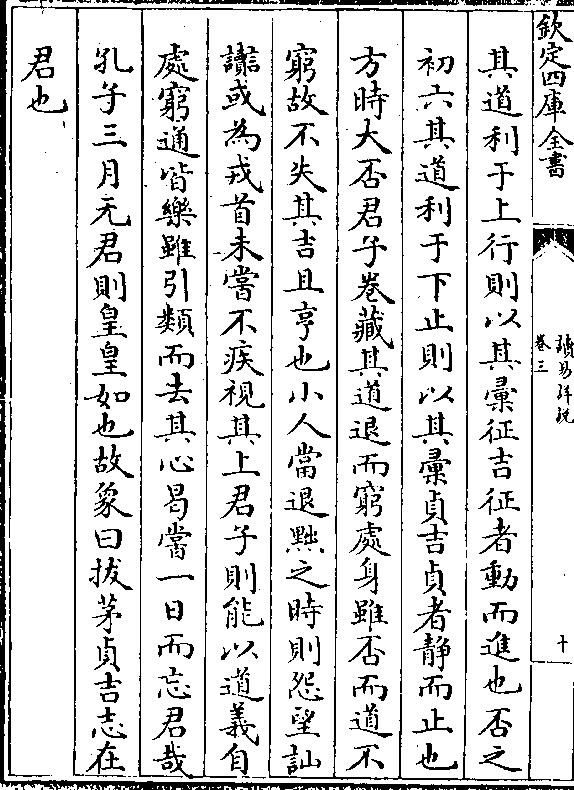 欽定四庫全書
讀易詳說
卷三
十
其道利于上行則以其彚征吉征者動而進也否之
初六其道利于下止則以其彚貞吉貞者静而止也
方時大否君子卷藏其道退而窮處身雖否而道不
窮故不失其吉且亨也小人當退黜之時則怨望訕
讟或為戎首未嘗不疾視其上君子則能以道義自
處窮通皆樂雖引類而去其心曷嘗一日而忘君哉
孔子三月无君則皇皇如也故象曰拔茅貞吉志在
君也